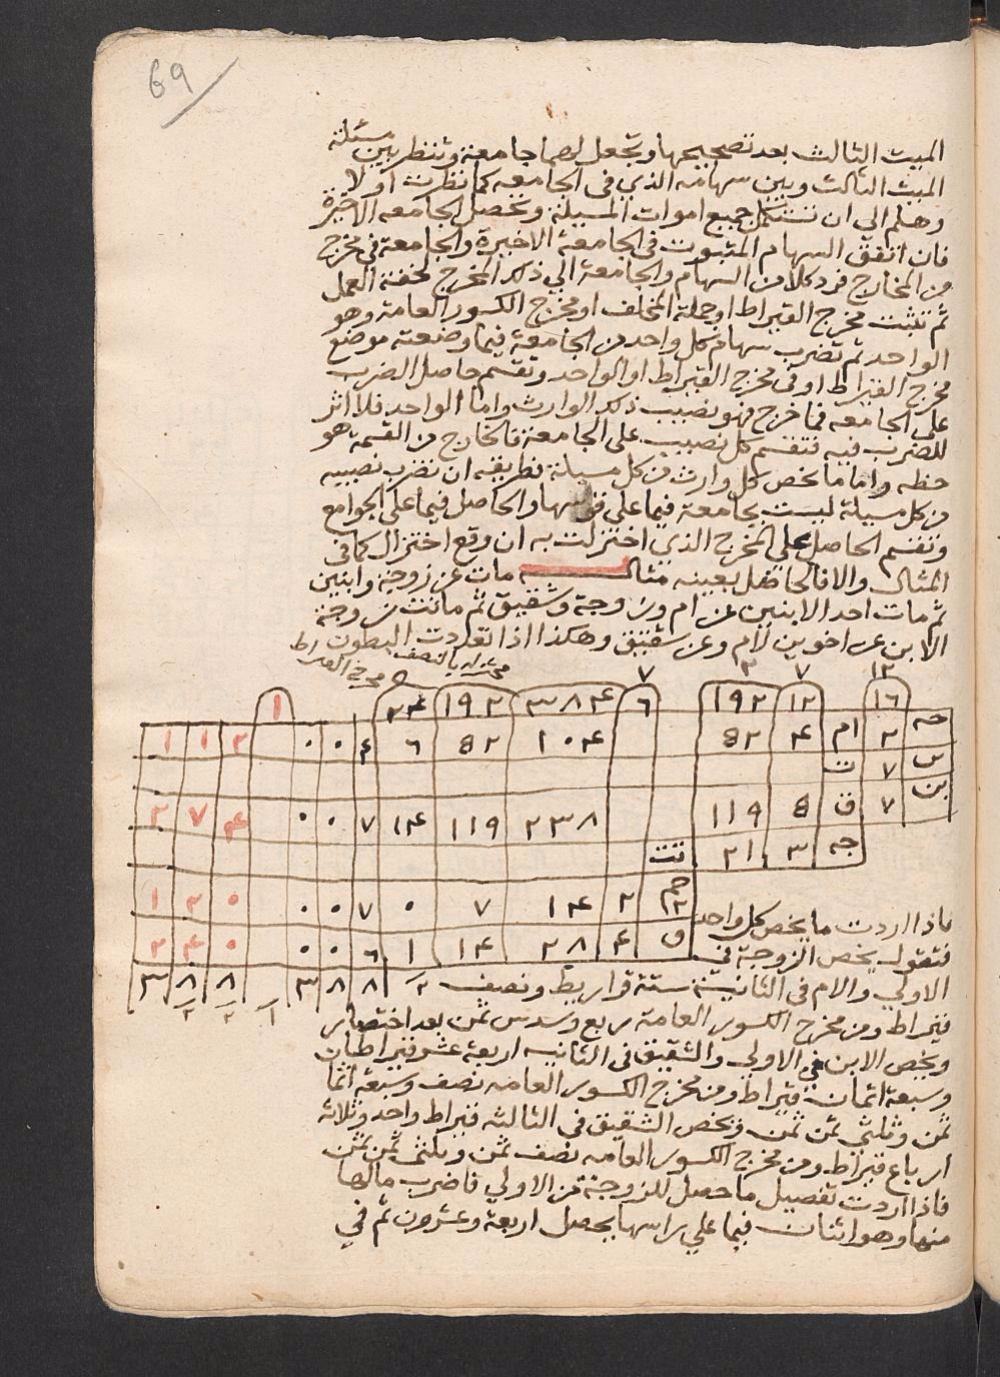 69
الميت الثالث بعد تصحيحها وتجعل لهما جامعة وتنظر بين مسئلة
الميت الثالث وبين سهامه الذي في الجامعه كما نظرت اولا
وهلم الي ان تستكمل جميع اموات المسيلة وتحصل الجامعه الاخيرة
فان اتفق السهام المثبوت في الجامعة الاخيرة والجامعة في مخرج
من المخارج فرد كلا من السهام والجامعة الي ذلك المخرج لخفة العمل
ثم تثبت مخرج القيراط او جملة المخلف او مخرج الكسور العامة وهو
الواحد ثم تضرب سهام كل واحد من الجامعة فيما وضعته موضع
مخرج القيراط او في مخرج القيراط او الواحد وتقسم حاصل الضرب
على الجامعه فما خرج فهو نصيب ذلك الوارث واما الواحد فلا اثر
للضرب فيه فتقسم كل نصيب على الجامعة فالخارج من القسمة هو
حظه واما ما يخص كل وارث من كل مسيلة فطريقه ان تضرب نصيبه
من كل مسيلة ليست بجامعة فيما على قوسها والحاصل فيما على الجوامع
وتقسم الحاصل على المخرج الذي اختزلت به ان وقع اختزال كما في
المثال والا فالحاصل بعينه مثال مات عن زوجة وابنين
ثم مات احد الابنين عن ام وزوجة وشقيق ثم ماتت زوجة
الابن عن اخوين لام وعن شقيق وهكذا اذا تعددت البطون
١٢ ٧ ٣ ٧ مختزله بالنصف مخرج القيراط
١٦ ١٢ ١٩٢ ٦ ٣٨٤ ١٩٢ ٢٤ ١
جه ٢ ام ٤ 8٢ ١٠٤ 8٢ ٦ ٤ ٠ ٠ ٢ ١ ١
بن ٧ ت
بن ٧ ق 8 ١١٩ ٢٣٨ ١١٩ ١٤ ٧ ٠ ٠ ٤ ٧ ٢
جه ٣ ٢١ تت
خم ٢ ٢ ١٤ ٧ ٠ ٧ ٠ ٠ ٠ ٣ ١
ق ٤ ٢٨ ١٤ ١ ٦ ٠ ٠ ٠ ٤ ٢
٨ ٨ ٣ ٨ ٨ ٣
فاذا اردت ما يخص كل واحد
فتقول يخص الزوجة في
الاولي والام في الثانية ستة قراريط ونصف
قيراط ومن مخرج الكسور العامة ربع وسدس ثمن بعد اختصار
ويخص الابن في الاولي والشقيق في الثانيه اربعة عشر قيراطا
وسبعة اثمان قيراط ومن مخرج الكسور العامه نصف وسبعة اثما
ثمن وثلثي ثمن ثمن ويخص الشقيق في الثالثه قيراط واحد وثلاثة
ارباع قيراط ومن مخرج الكسور العامه نصف ثمن وثلثي ثمن ثمن
فاذا اردت تفصيل ما حصل للزوجة من الاولي فاضرب مالها
منها وهو اثنان فيما علي راسها يحصل اربعة وعشرون ثم في